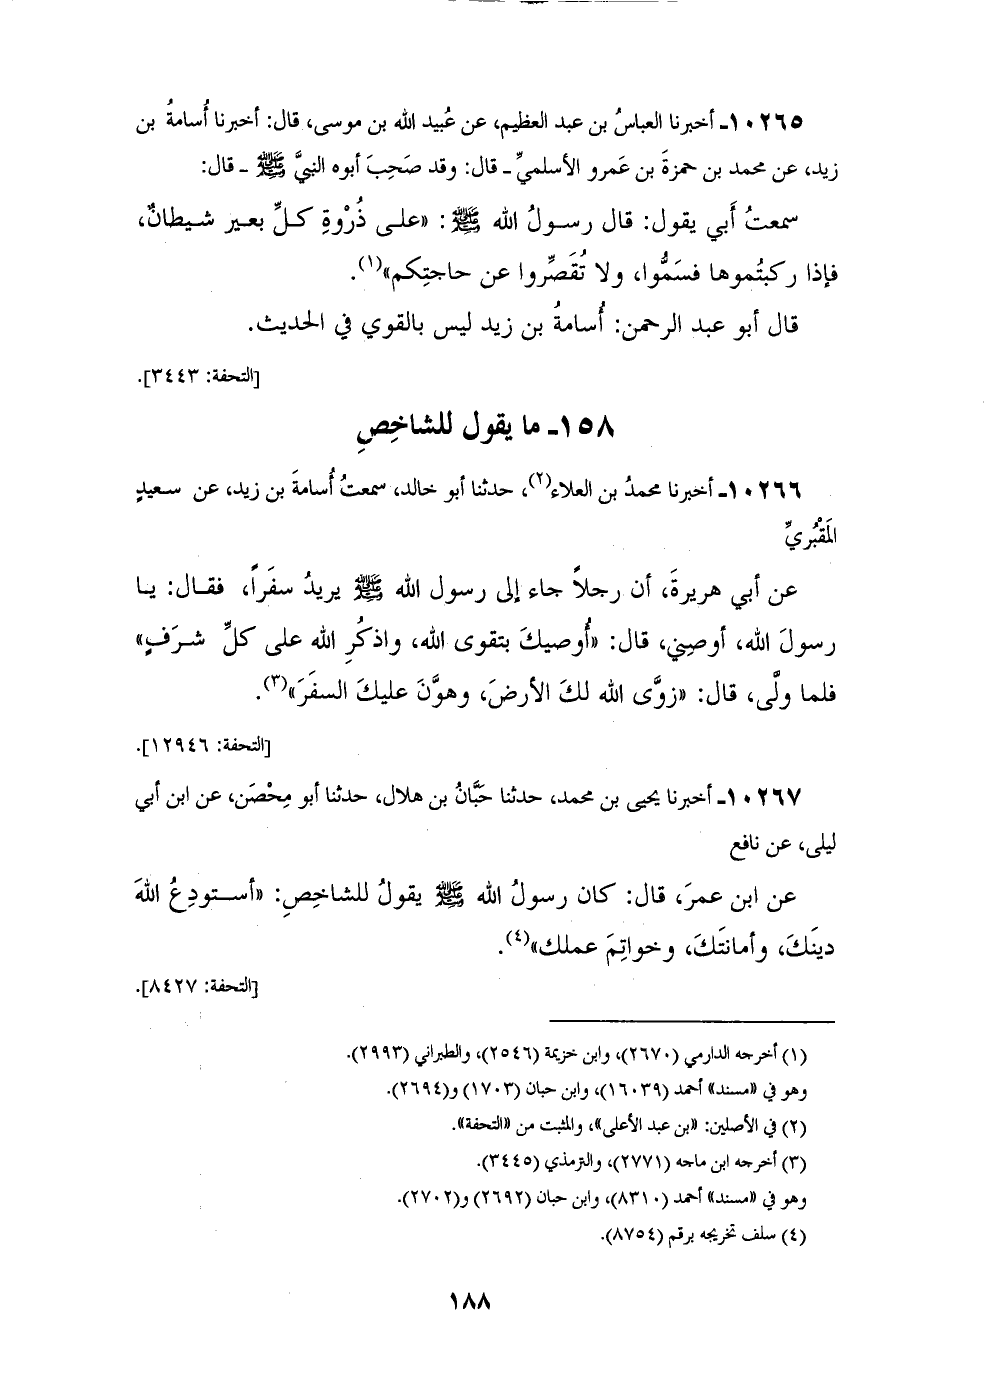 ١٠٢٦٥ـ أخبرنا العباسُ بن عبد العظيم، عن عُبيد الله بن موسى، قال: أخبرنا أُسامةُ بن
زيد، عن محمد بن حمزةَ بن عَمرو الأسلميِّ ـ قال: وقد صَحِبَ أبوه النبيَّ ﷺ ـ قال:
سمعتُ أَبي يقول: قال رسولُ الله ﷺ: «على ذُرْوةِ كلِّ بعير شيطانٌ،
فإذا ركبتُموها فسَمُّوا، ولا تُقَصِّروا عن حاجتِكم»(١).
قال أبو عبد الرحمن: أُسامةُ بن زيد ليس بالقوي في الحديث.
[التحفة: ٣٤٤٣].
١٥٨ـ ما يقول للشاخِصِ
١٠٢٦٦ـ أخبرنا محمدُ بن العلاء(٢)، حدثنا أبو خالد، سمعتُ أُسامةَ بن زيد، عن سعيدٍ
المَقْبُريِّ
عن أبي هريرةَ، أن رجلاً جاء إلى رسول الله ﷺ يريدُ سفَراً، فقال: يا
رسولَ الله، أوصِني، قال: «أُوصيكَ بتقوى الله، واذكُرِ الله على كلِّ شرَفٍ»
فلما ولَّى، قال: «زوَّى الله لكَ الأرضَ، وهوَّنَ عليكَ السفَرَ»(٣).
[التحفة: ١٢٩٤٦].
١٠٢٦٧ـ أخبرنا يحيى بن محمد، حدثنا حَبَّانُ بن هلال، حدثنا أبو مِحْصَن، عن ابن أبي
ليلى، عن نافع
عن ابن عمرَ، قال: كان رسولُ الله ﷺ يقولُ للشاخِصِ: «أستودِعُ اللهَ
دينَكَ، وأمانتَكَ، وخواتِمَ عملك»(٤).
[التحفة: ٨٤٢٧].
(١) أخرجه الدارمي (٢٦٧٠)، وابن خزيمة (٢٥٤٦)، والطبراني (٢٩٩٣).
وهو في «مسند» أحمد (١٦٠٣٩)، وابن حبان (١٧٠٣) و(٢٦٩٤).
(٢) في الأصلين: «بن عبد الأعلى»، والمثبت من «التحفة».
(٣) أخرجه ابن ماجه (٢٧٧١)، والترمذي (٣٤٤٥).
وهو في «مسند» أحمد (٨٣١٠)، وابن حبان (٢٦٩٢) و(٢٧٠٢).
(٤) سلف تخريجه برقم (٨٧٥٤).
١٨٨